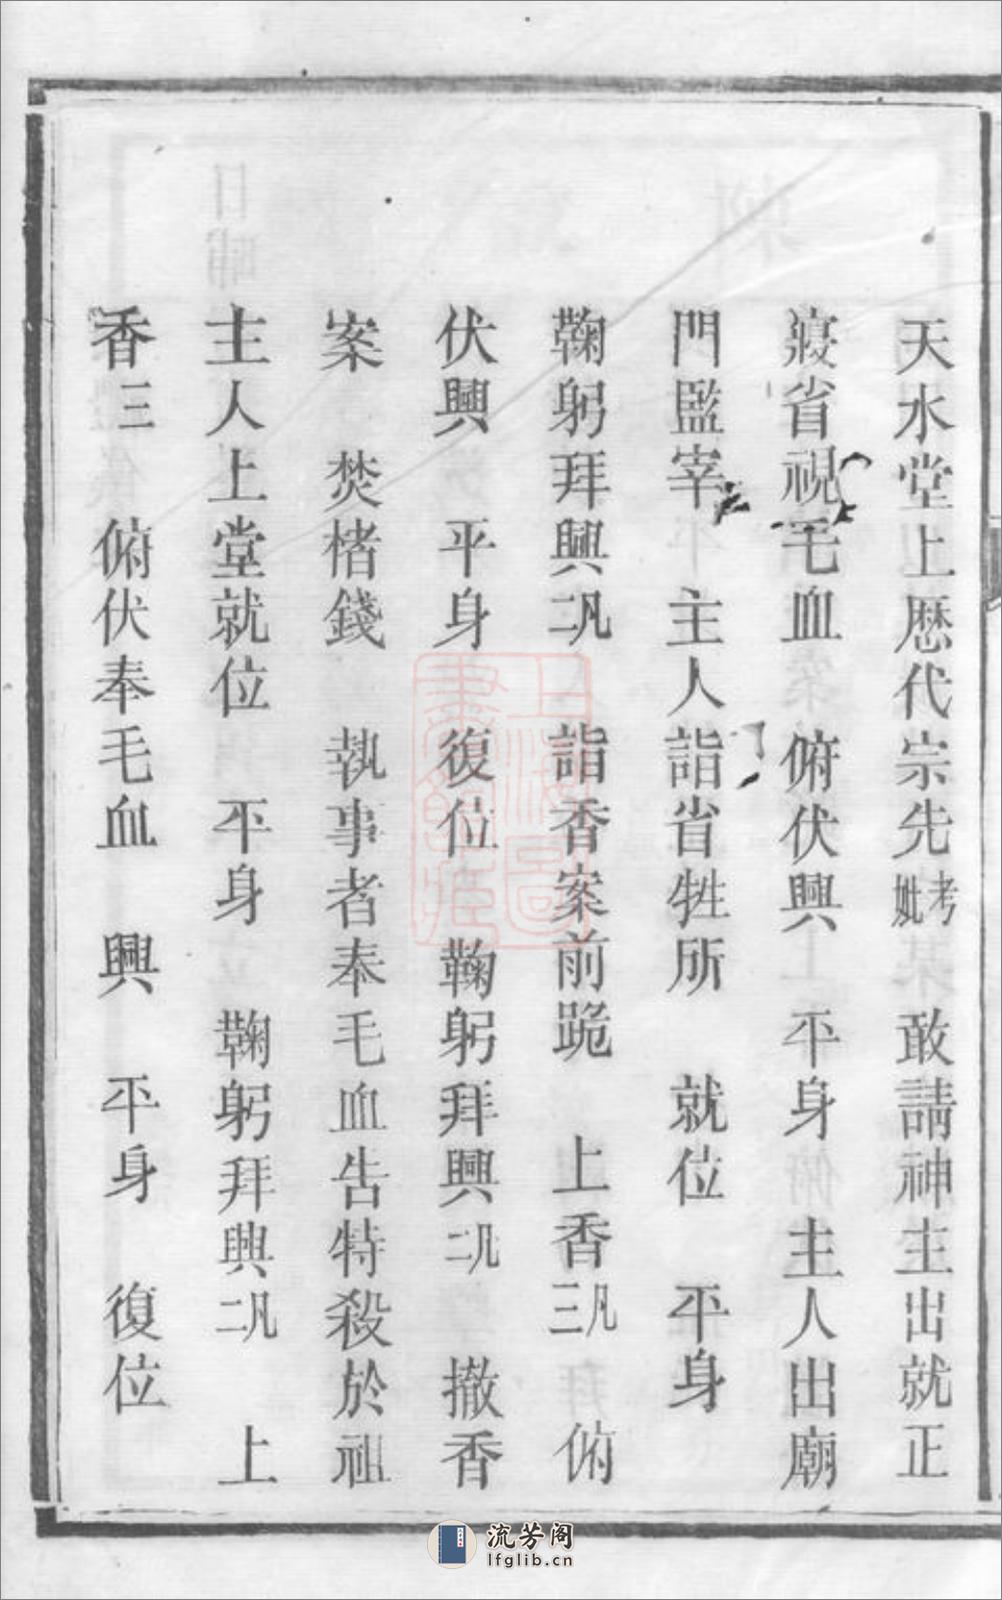 天水堂上歷代宗先考妣 敢請神主出就正
寢省視毛血 俯伏興 平身 主人出廟
門監宰 主人詣省牲所 就位 平身
鞠躬拜興凡二 詣香案前跪 上香凡三 俯
伏興 平身 復位 鞠躬拜興凡二 撤香
案 焚楮錢 執事者奉毛血告特殺於祖
主人上堂就位 平身 鞠躬拜興凡二 上
香三 俯伏奉毛血 興 平身 復位
上海圖書館藏
流芳阁
lfglib.cn